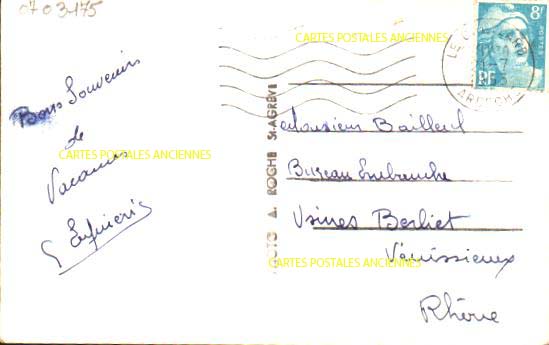 0703-175
CARTES POSTALES ANCIENNES
8F
POSTES
RF
LE
ARDECHE
Bons Souvenirs
de
CARTES POSTALES ANCIENNES
Vacances
PHOTO A. ROCHE St-AGRÈVE
Monsieur Bailleul
Bureau Embauche
Usines Berliet
CARTES POSTALES ANCIENNES
Vénissieux
Rhône